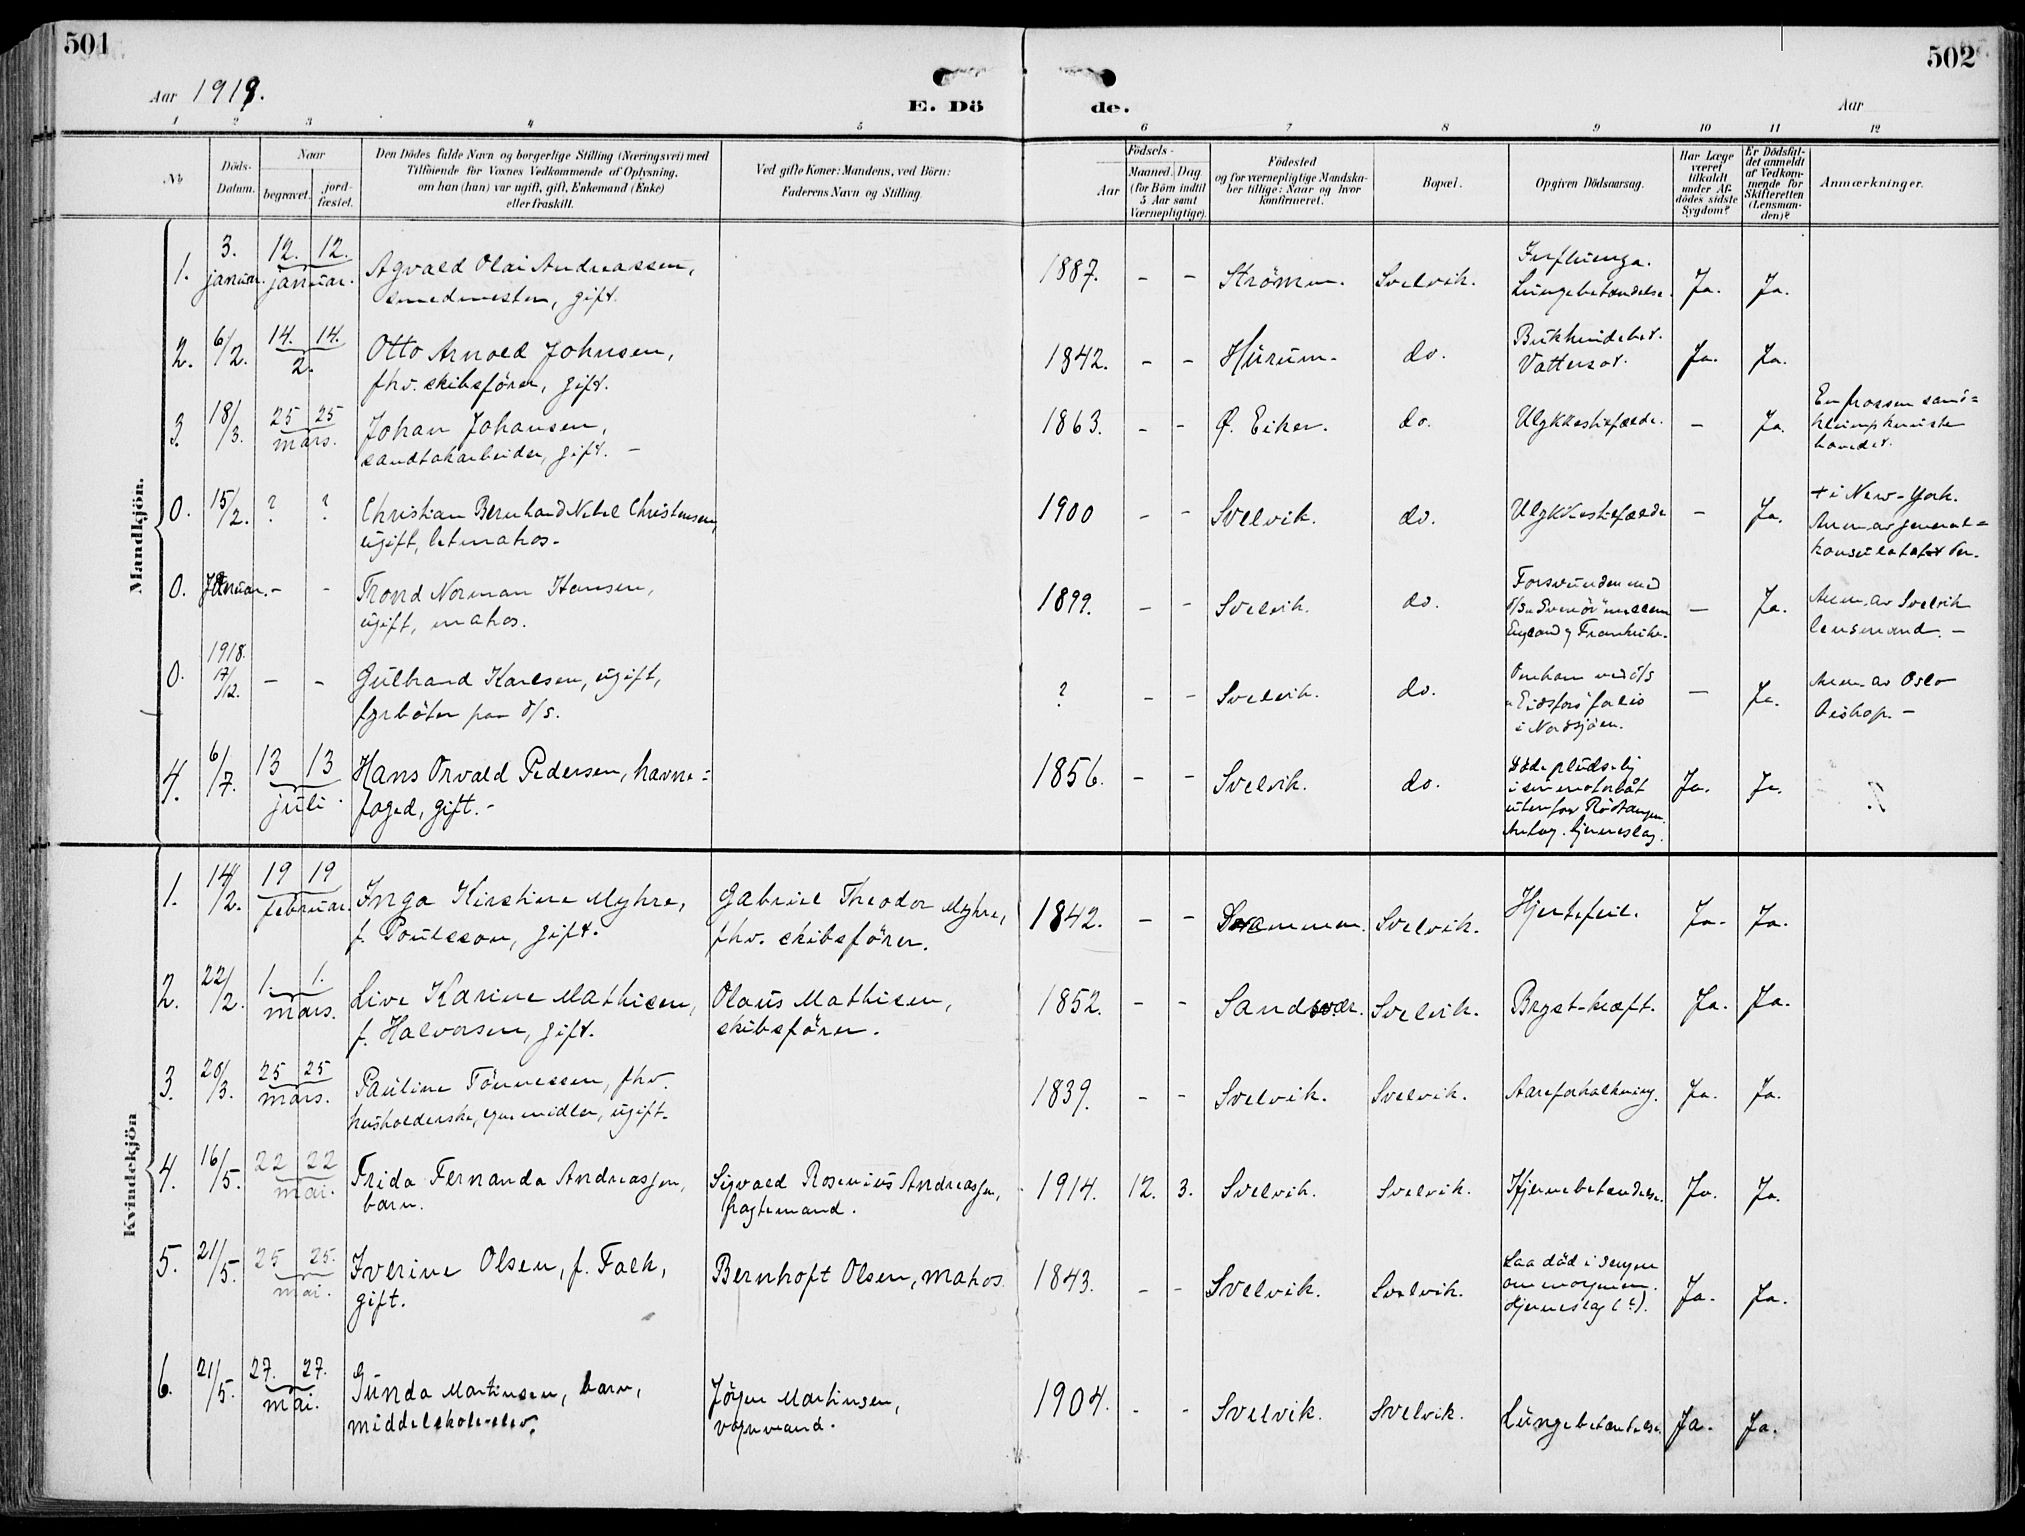 501
502
Aar 1919.
E. Dö
de.
Aar
1 2 3 4 5 6 7 8 9 10 11 12
No
Döds-Datum.
Naar
begravet.
jord-fæstet.
Den Dödes fulde Navn og borgerlige Stilling (Næringsvei) med
Tilföiende for Voxnes Vedkommende af Oplysning,
om han (hun) var ugift, gift, Enkemand (Enke)
eller fraskilt.
Ved gifte Koner: Mandens, ved Börn:
Faderens Navn og Stilling.
Födsels-
Aar
Maaned. Dag.
(for Börn indtil
5 Aar samt
Værnepligtige).
Födested
og for værnepligtige Mandska-
ber tillige: Naar og hvor
konfirmeret.
Bopæl.
Opgiven Dödsaarsag.
Har Læge
været
tilkaldt
under Af-
dödes sidste
Sygdom?
Er Dödsfal-
det anmeldt
af Vedkom-
mende for
Skifteretten
(Lensman-
den)?
Anmærkninger.
Mandkjön.
1. 3. januar. 12. 12. januar. Agvald Olai Andreassen, 1887. - - Strömm. Svelvik. Influenga. Ja. Ja.
smedmester, gift. Lungebetændelse.
2. 6/2. 14. 14. 2. Otto Arnold Johnsen, 1842. - - Hurum. do. Bukhindebet. Ja. Ja.
fhv. skibsförer, gift. Vattersot.
3. 18/3. 25 25 mars. Johan Johansen, 1863. - - Ø. Eiker. do. Ulykkestilfælde. - Ja. En frossen sand=
sandtakarbeider, gift. - klump knuste
hovedet.
0. 15/2. ? ? Christian Bernhard Christensen, 1900 - - Svelvik. do. Ulykkestilfælde - Ja. + i New-York.
ugift, letmatros. Anm. av general=
konsulatet der.
0. Januar. - - Trond Norman Hansen, 1899. - - Svelvik. do. Forsvunden med - Ja. Anm. av Svelvik
ugift, matros. mellem lensmand. -
England og Frankrike.
0. 1918. 17/12. - - Gulbrand Karlsen, ugift, ? - - Svelvik. do. Omkom ved d/s - Ja. Anm. av Oslo
fyrböter paa d/s. "Eidsfos" forlis bishop. -
i Nordsjöen.
4. 6/7. 13 13 juli. Hans Orvald Pedersen, havne= 1856. - - Svelvik. do. Döde pludselig Ja. Ja.
foged, gift. - i sin motorbåt
utenfor Rödtangen.
Antag. hjerneslag.
Kvindekjön
1. 14/2. 19 19 februar. Inga Kirstine Myhre, Gabriel Theodor Myhre, 1842. - - Drammen. Svelvik. Hjertefeil. Ja. Ja.
f. Poulsson, gift. fhv. skibsförer.
2. 22/2. 1. 1. mars. Live Karine Mathisen, Olaus Mathisen, 1852. - - Sandsvær. Svelvik. Bryst-kræft. Ja. Ja.
f. Halvorsen, gift. skibsförer.
3. 20/3. 25 25 mars. Pauline Tönnessen, fhv. 1839. - - Svelvik. Svelvik. Aareforkalkning. Ja. Ja.
husholderske, egne midler, ugift.
4. 16/5. 22 22 mai. Frida Fernanda Andreassen, Sigvald Rosenius Andreassen, 1914. 12. 3. Svelvik. Svelvik. Hjernebetændelse. Ja. Ja.
barn. fragtemand.
5. 21/5. 25 25. mai. Iverine Olsen, f. Falk, Bernhoft Olsen, matros. 1843. - - Svelvik. Svelvik. Laa död i sengen Ja. Ja.
gift. om morgenen.
Hjerneslag (?).
6. 21/5. 27. 27. mai. Gunda Martinsen, barn, Jörgen Martinsen, 1904. - - Svelvik. Svelvik. Lungebetændelse. Ja. Ja.
middelskoleelev. vognmand.